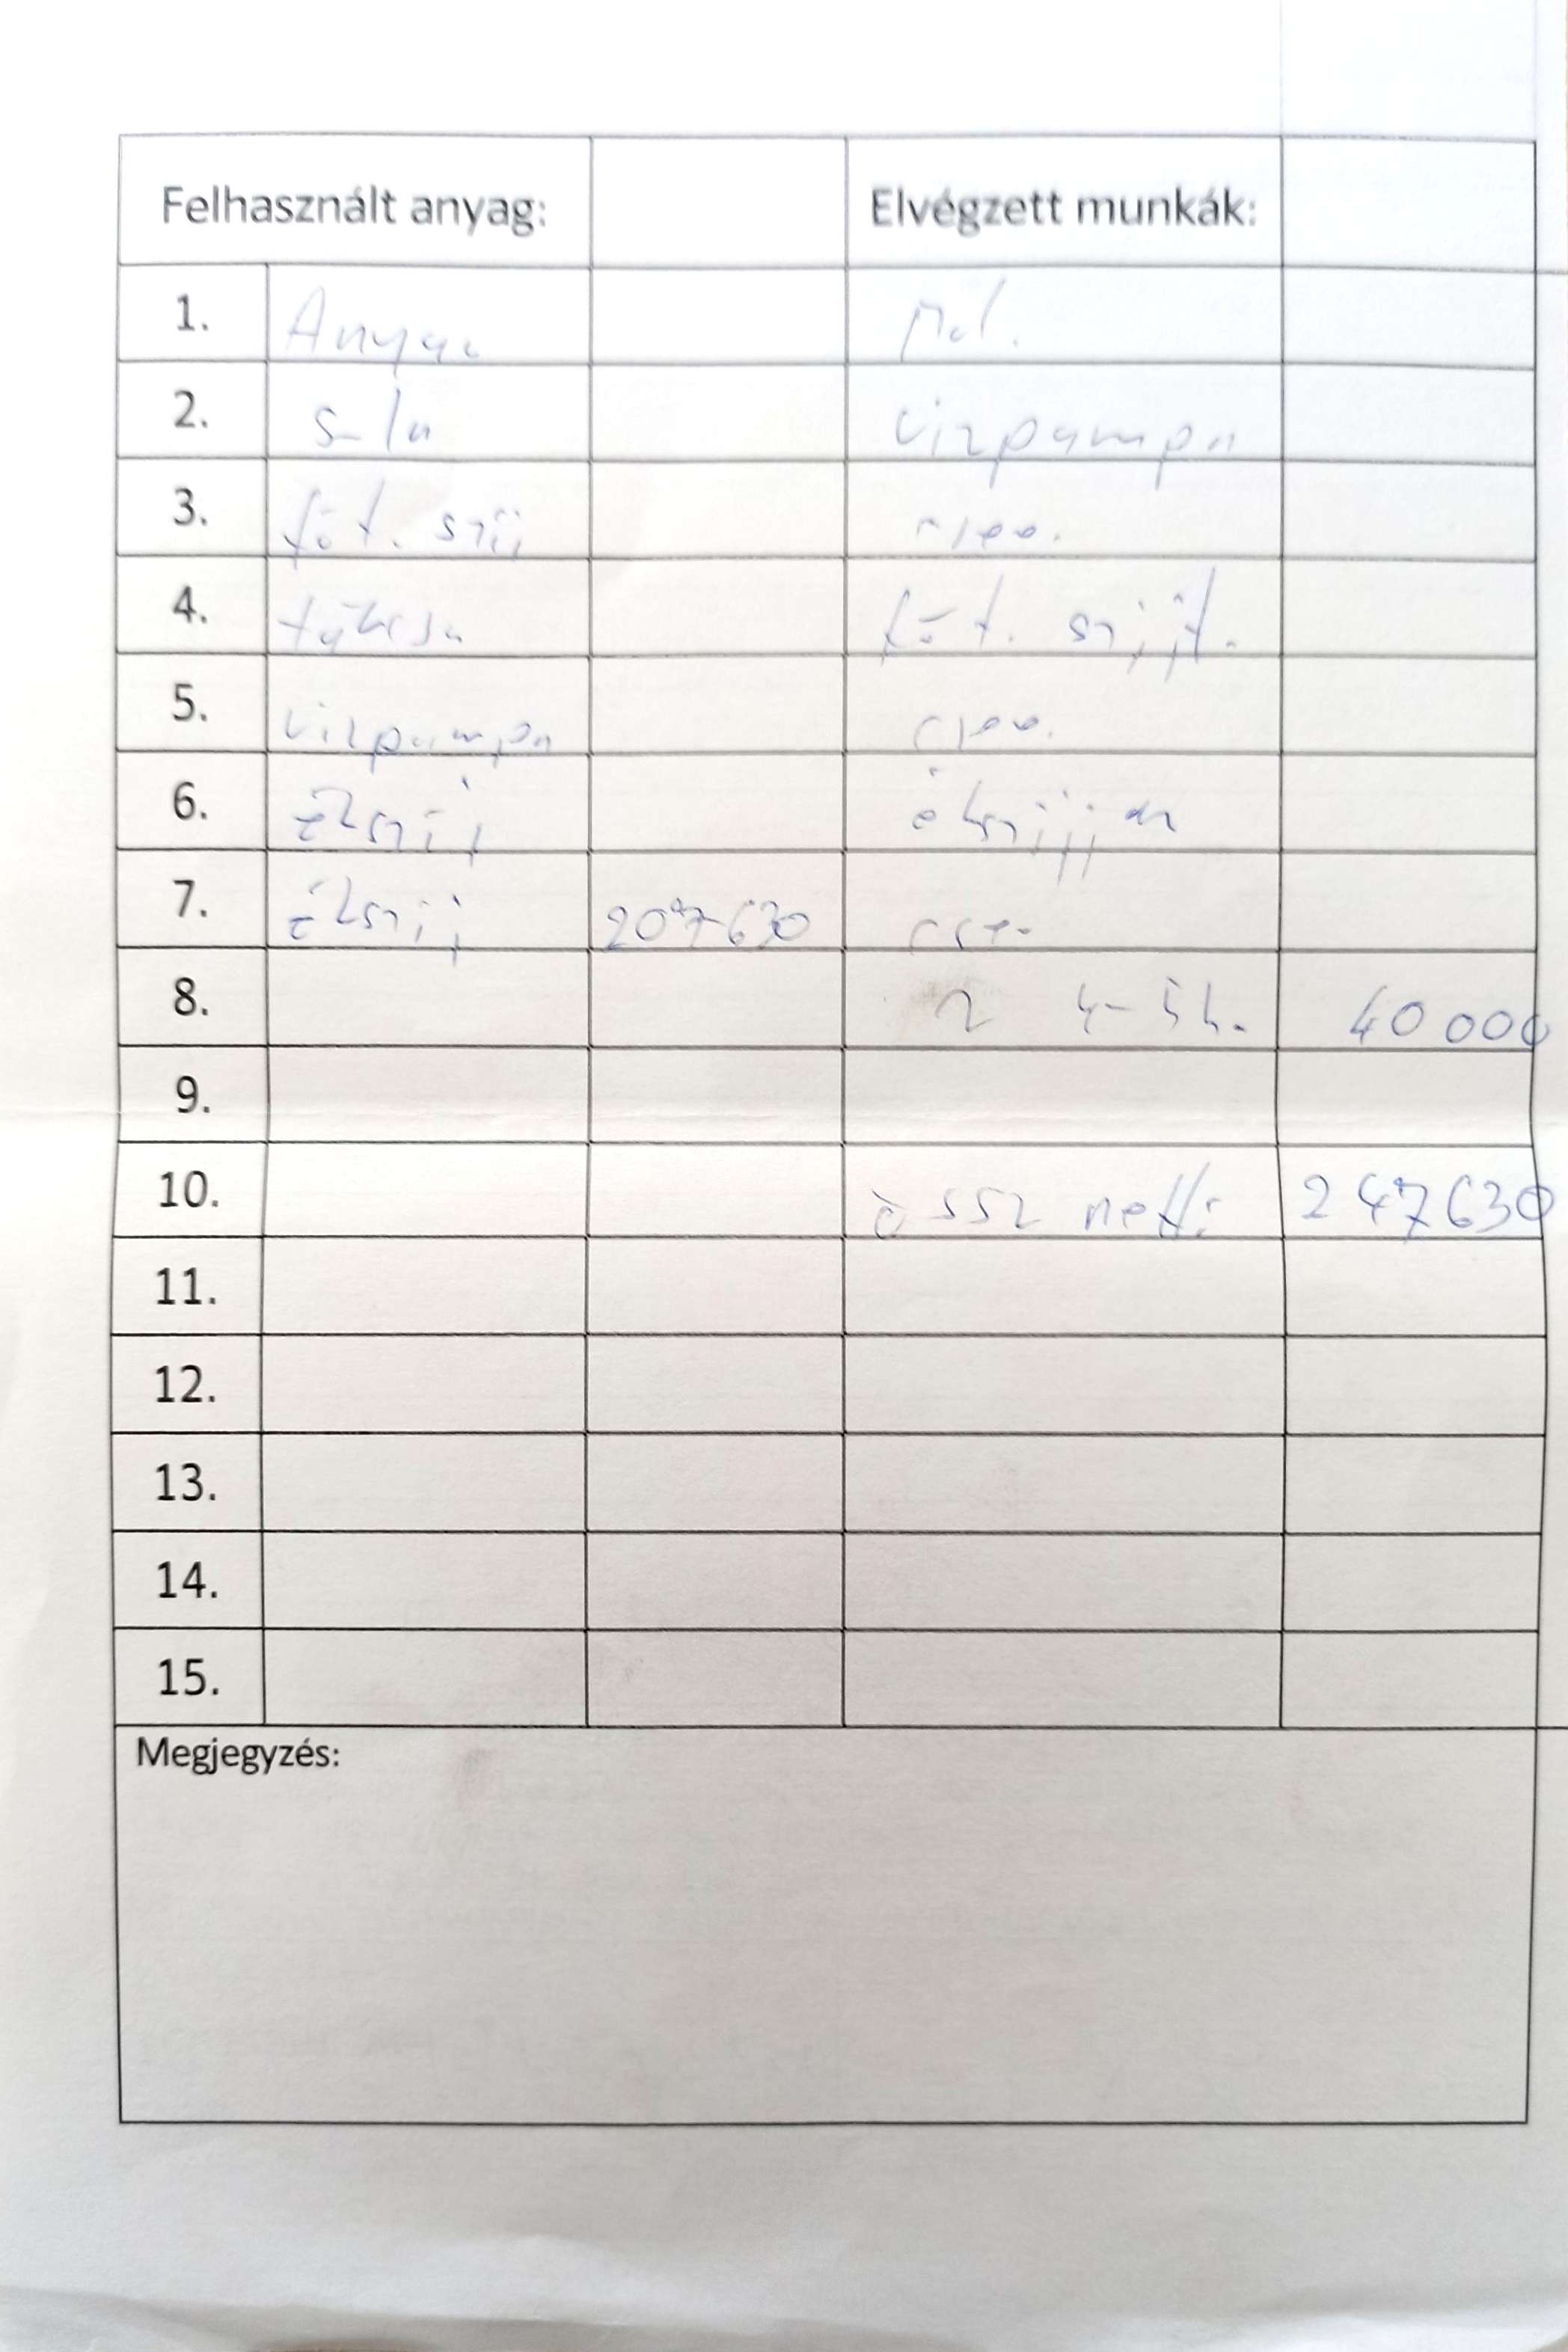 Felhasznált anyag: Elvégzett munkák:
1. Anyag
2. vizpumpa
3. föt. szíj csee.
4. föt. szíjt.
5. vizpumpa csee.
6. ékszíj ékszíjak
7. ékszíj 207630 cse.
8. 2 4-5 h. 40 000
9.
10. össz nettó 247630
11.
12.
13.
14.
15.
Megjegyzés: